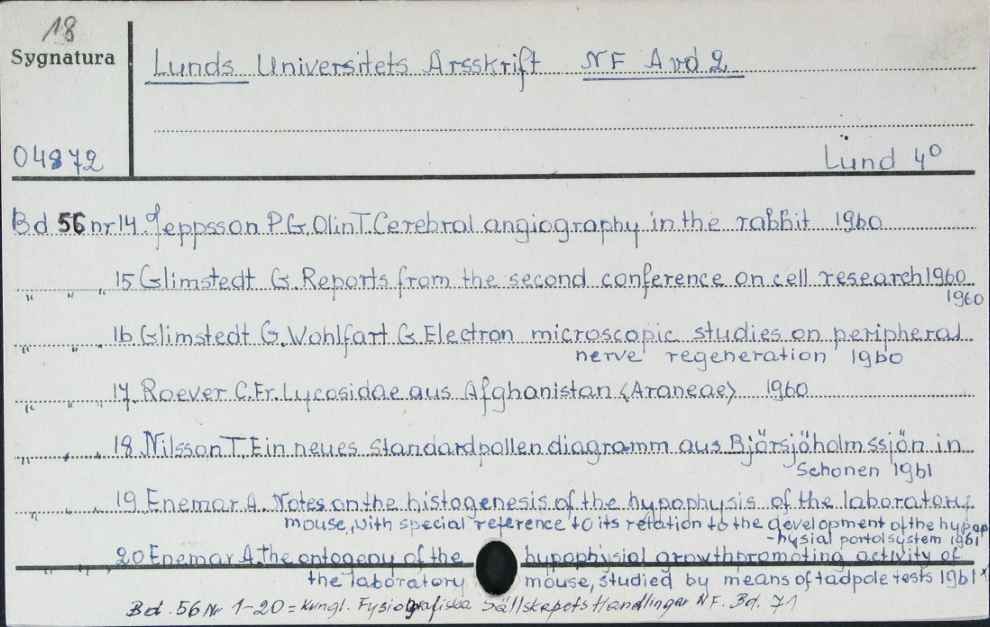 18
Sygnatura
Lunds Universitets Arsskrift NF Avd 2
04872
Lund 4°
Bd 56 nr 14 Jeppsson P.G. Olin T. Cerebral angiography in the rabbit 1960
" " " 15 Glimstedt G. Reports from the second conference on cell research 1960
1960
" " " 16 Glimstedt G. Wohlfart G. Electron microscopic studies on peripheral
nerve regeneration 1960
" " " 17. Roewer C.Fr. Lycosidae aus Afghanistan <Araneae> 1960
" " " 18 Nilsson T. Ein neues Standardpollendiagramm aus Bjärsjöholmssjön in
Schonen 1961
" " " 19 Enemar A. Notes on the histogenesis of the hypophysis of the laboratory
mouse, with special reference to its relation to the development of the hypop
-hysial portal system 1961
" " " 20 Enemar A. The ontogeny of the hypophysial growthpromoting activity of
the laboratory mouse, studied by means of tadpole tests 1961 *)
Bd. 56 Nr 1-20 = Kungl. Fysiografiska Sällskapets Handlingar NF. Bd. 71